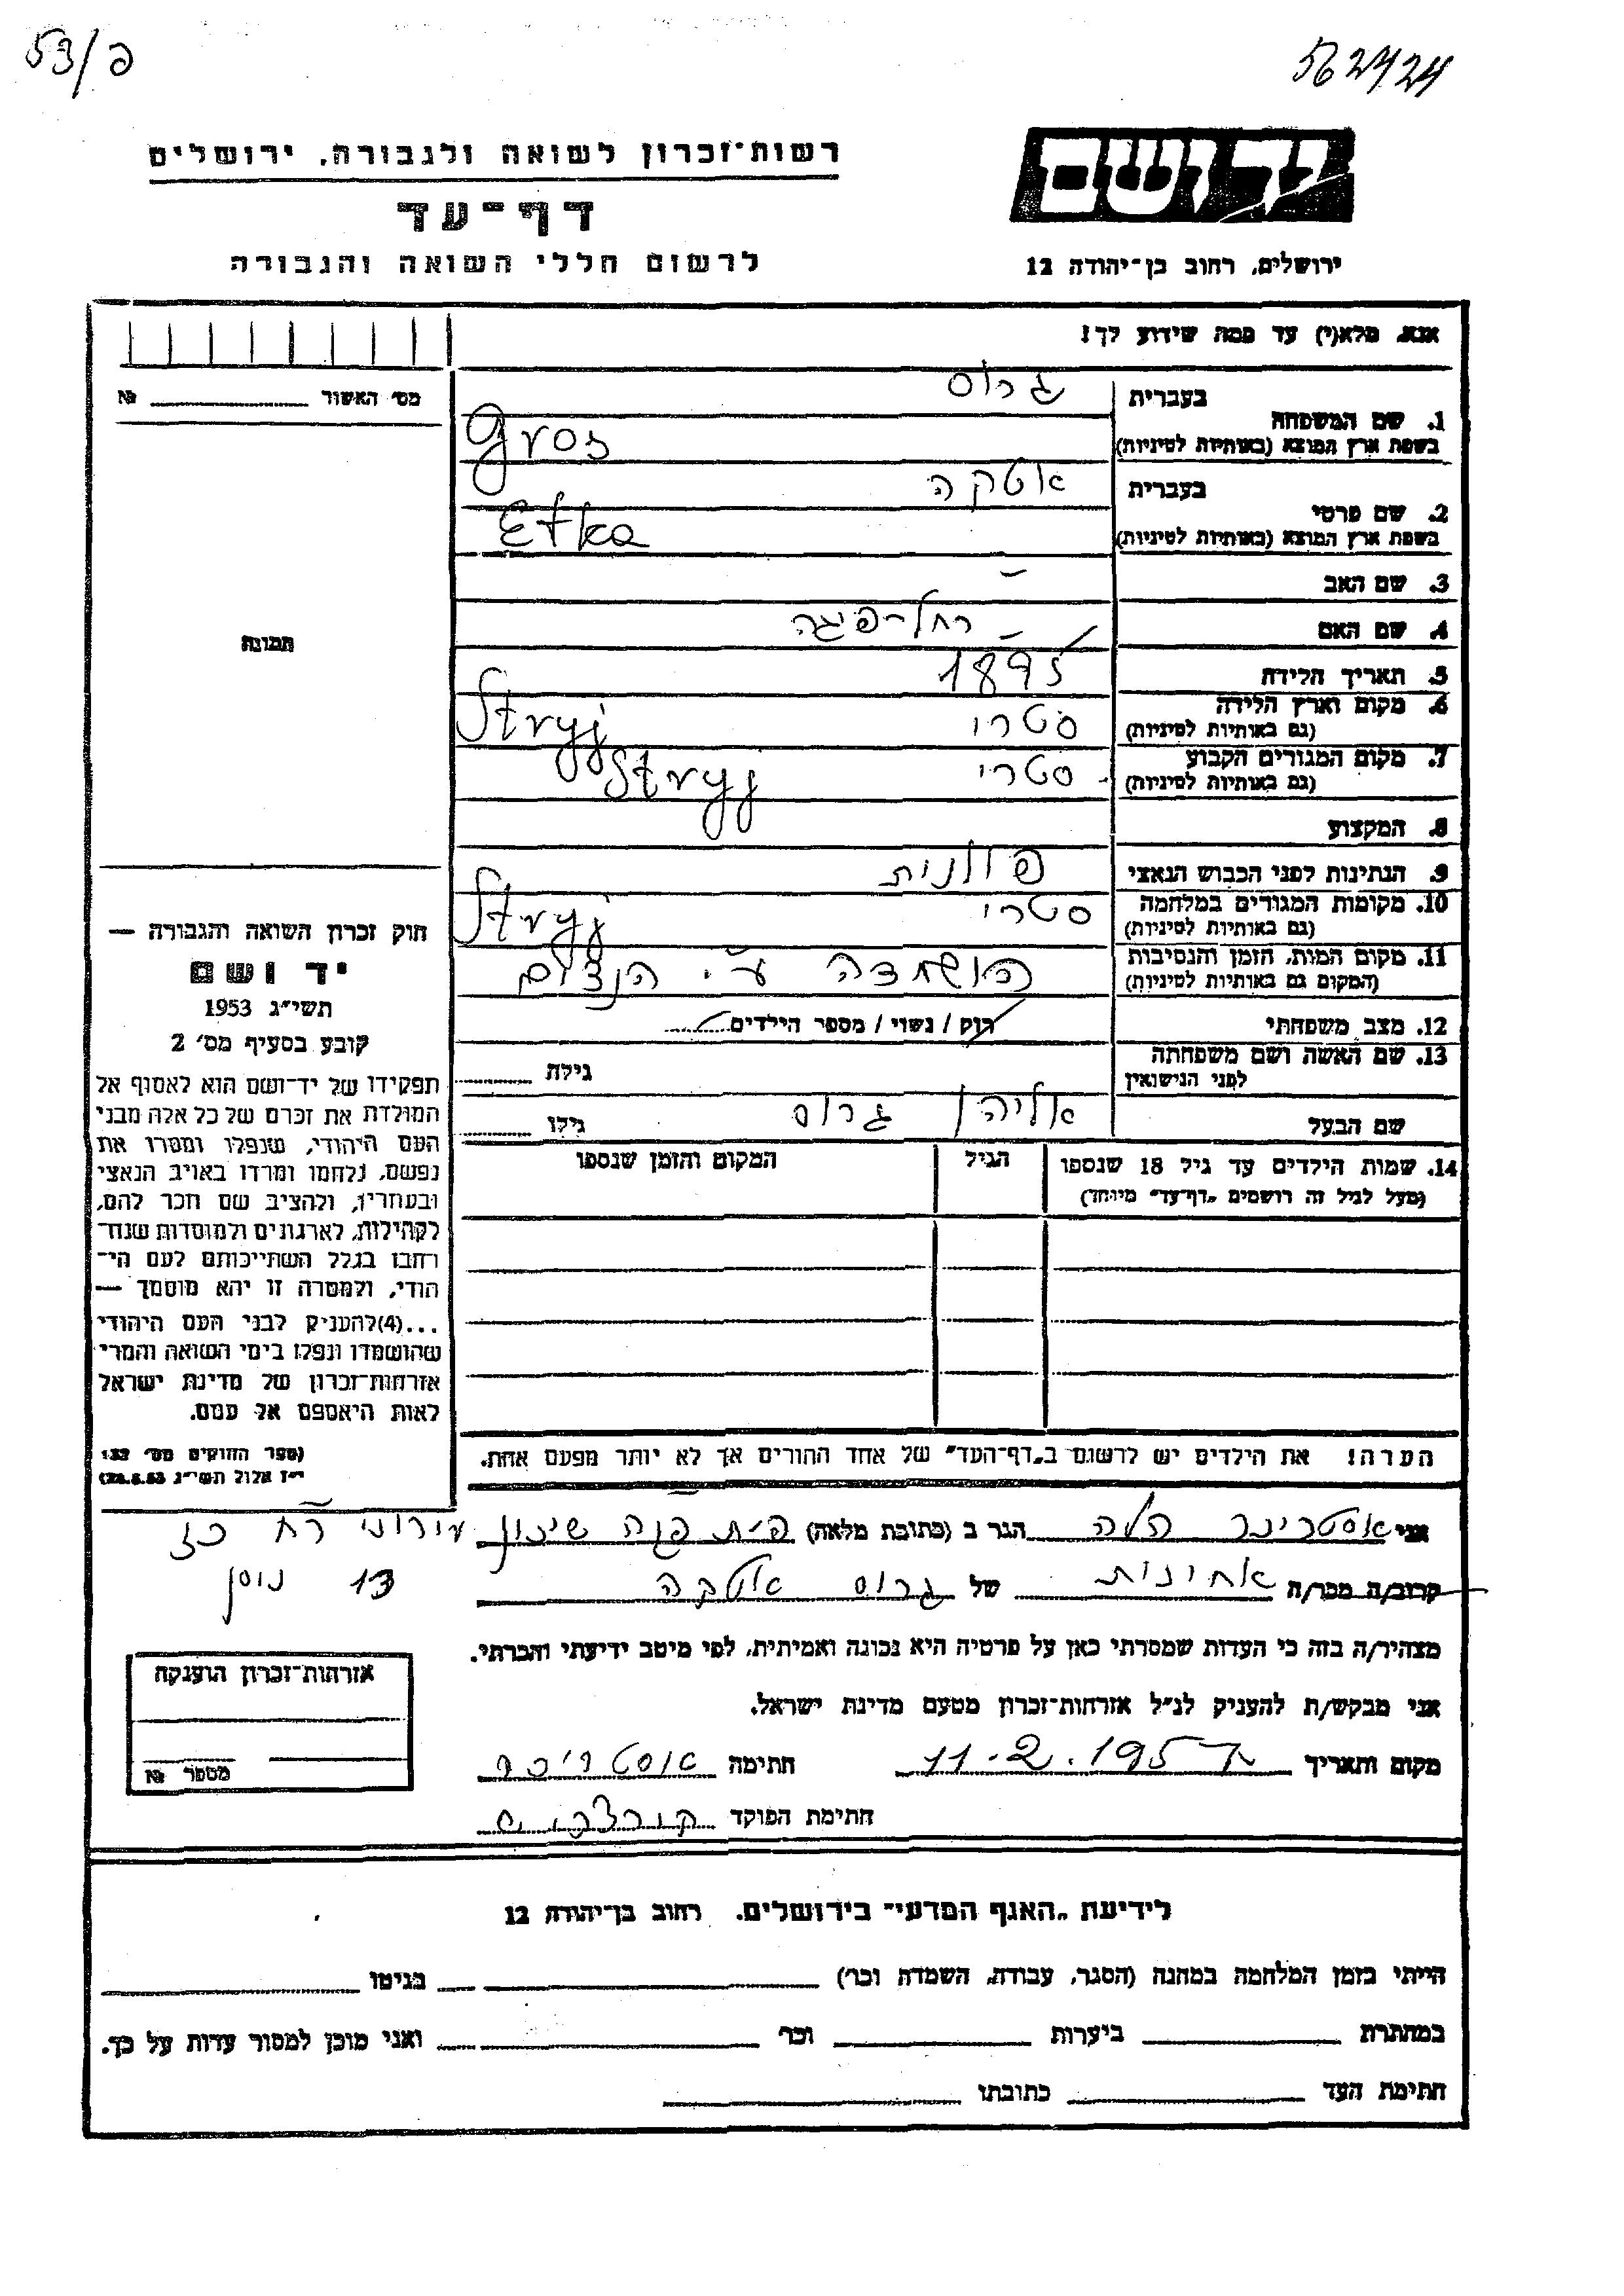 53/פ
562424
רשות־זכרון לשואה ולגבורה, ירושלים
יד ושם
דף־עד
לרשום חללי השואה והגבורה
ירושלים, רחוב בן־יהודה 12
אנא, מלא(י) עד כמה שידוע לך!
מס׳ האשור № 
1. שם המשפחה
בעברית גרוס
בשפת ארץ המוצא (באותיות לטיניות) Gros
2. שם פרטי
בעברית אטקה
בשפת ארץ המוצא (באותיות לטיניות) Etka
3. שם האב –
4. שם האם רחל-פיגה
תמונה
5. תאריך הלידה 1895
6. מקום וארץ הלידה סטרי Stryj
(גם באותיות לטיניות)
7. מקום המגורים הקבוע סטרי Stryj
(גם באותיות לטיניות)
8. המקצוע
9. הנתינות לפני הכבוש הנאצי פולנית
10. מקומות המגורים במלחמה סטרי Stryj
(גם באותיות לטיניות)
11. מקום המות, הזמן והנסיבות הושמדה ע״י הנצים
(המקום גם באותיות לטיניות)
12. מצב משפחתי רוק / נשוי / מספר הילדים
13. שם האשה ושם משפחתה גילה
לפני הנישואין
שם הבעל אליהו גרוס גילו
14. שמות הילדים עד גיל 18 שנספו הגיל המקום והזמן שנספו
(מעל לגיל זה רושמים „דף־עד״ מיוחד)
חוק זכרון השואה והגבורה —
יד ושם
תשי״ג 1953
קובע בסעיף מס׳ 2
תפקידו של יד־ושם הוא לאסוף אל
המולדת את זכרם של כל אלה מבני
העם היהודי, שנפלו ומסרו את
נפשם, נלחמו ומרדו באויב הנאצי
ובעוזריו, ולהציב שם וזכר להם,
לקהילות, לארגונים ולמוסדות שנח־
רבו בגלל השתייכותם לעם הי־
הודי, ולמטרה זו יהא מוסמך —
...(4)להעניק לבני העם היהודי
שהושמדו ונפלו בימי השואה והמרי
אזרחות־זכרון של מדינת ישראל
לאות היאספם אל עמם.
(ספר החוקים מס׳ 132
י״ז אלול תשי״ג 28.8.53)
הערה! את הילדים יש לרשום ב„דף־העד״ של אחד ההורים אך לא יותר מפעם אחת.
אני אסטרייכר הלה הגר ב (כתובת מלאה) פ״ת פגה שיכון עירוני רח׳ כז
13 ניסן
קרוב/ה מכר/ה אחינות של גרוס אטקה
מצהיר/ה בזה כי העדות שמסרתי כאן על פרטיה היא נכונה ואמיתית, לפי מיטב ידיעתי והכרתי.
אני מבקש/ת להעניק לנ״ל אזרחות־זכרון מטעם מדינת ישראל.
מקום ותאריך 11.2.1957 חתימה אוסטרייכר
חתימת הפוקד
אזרחות־זכרון הוענקה
מספר №
לידיעת „האגף המדעי״ בירושלים, רחוב בן־יהודה 12
הייתי בזמן המלחמה במחנה (הסגר, עבודה, השמדה וכו׳) בגיטו
במחתרת ביערות וכו׳ ואני מוכן למסור עדות על כך.
חתימת העד כתובתו